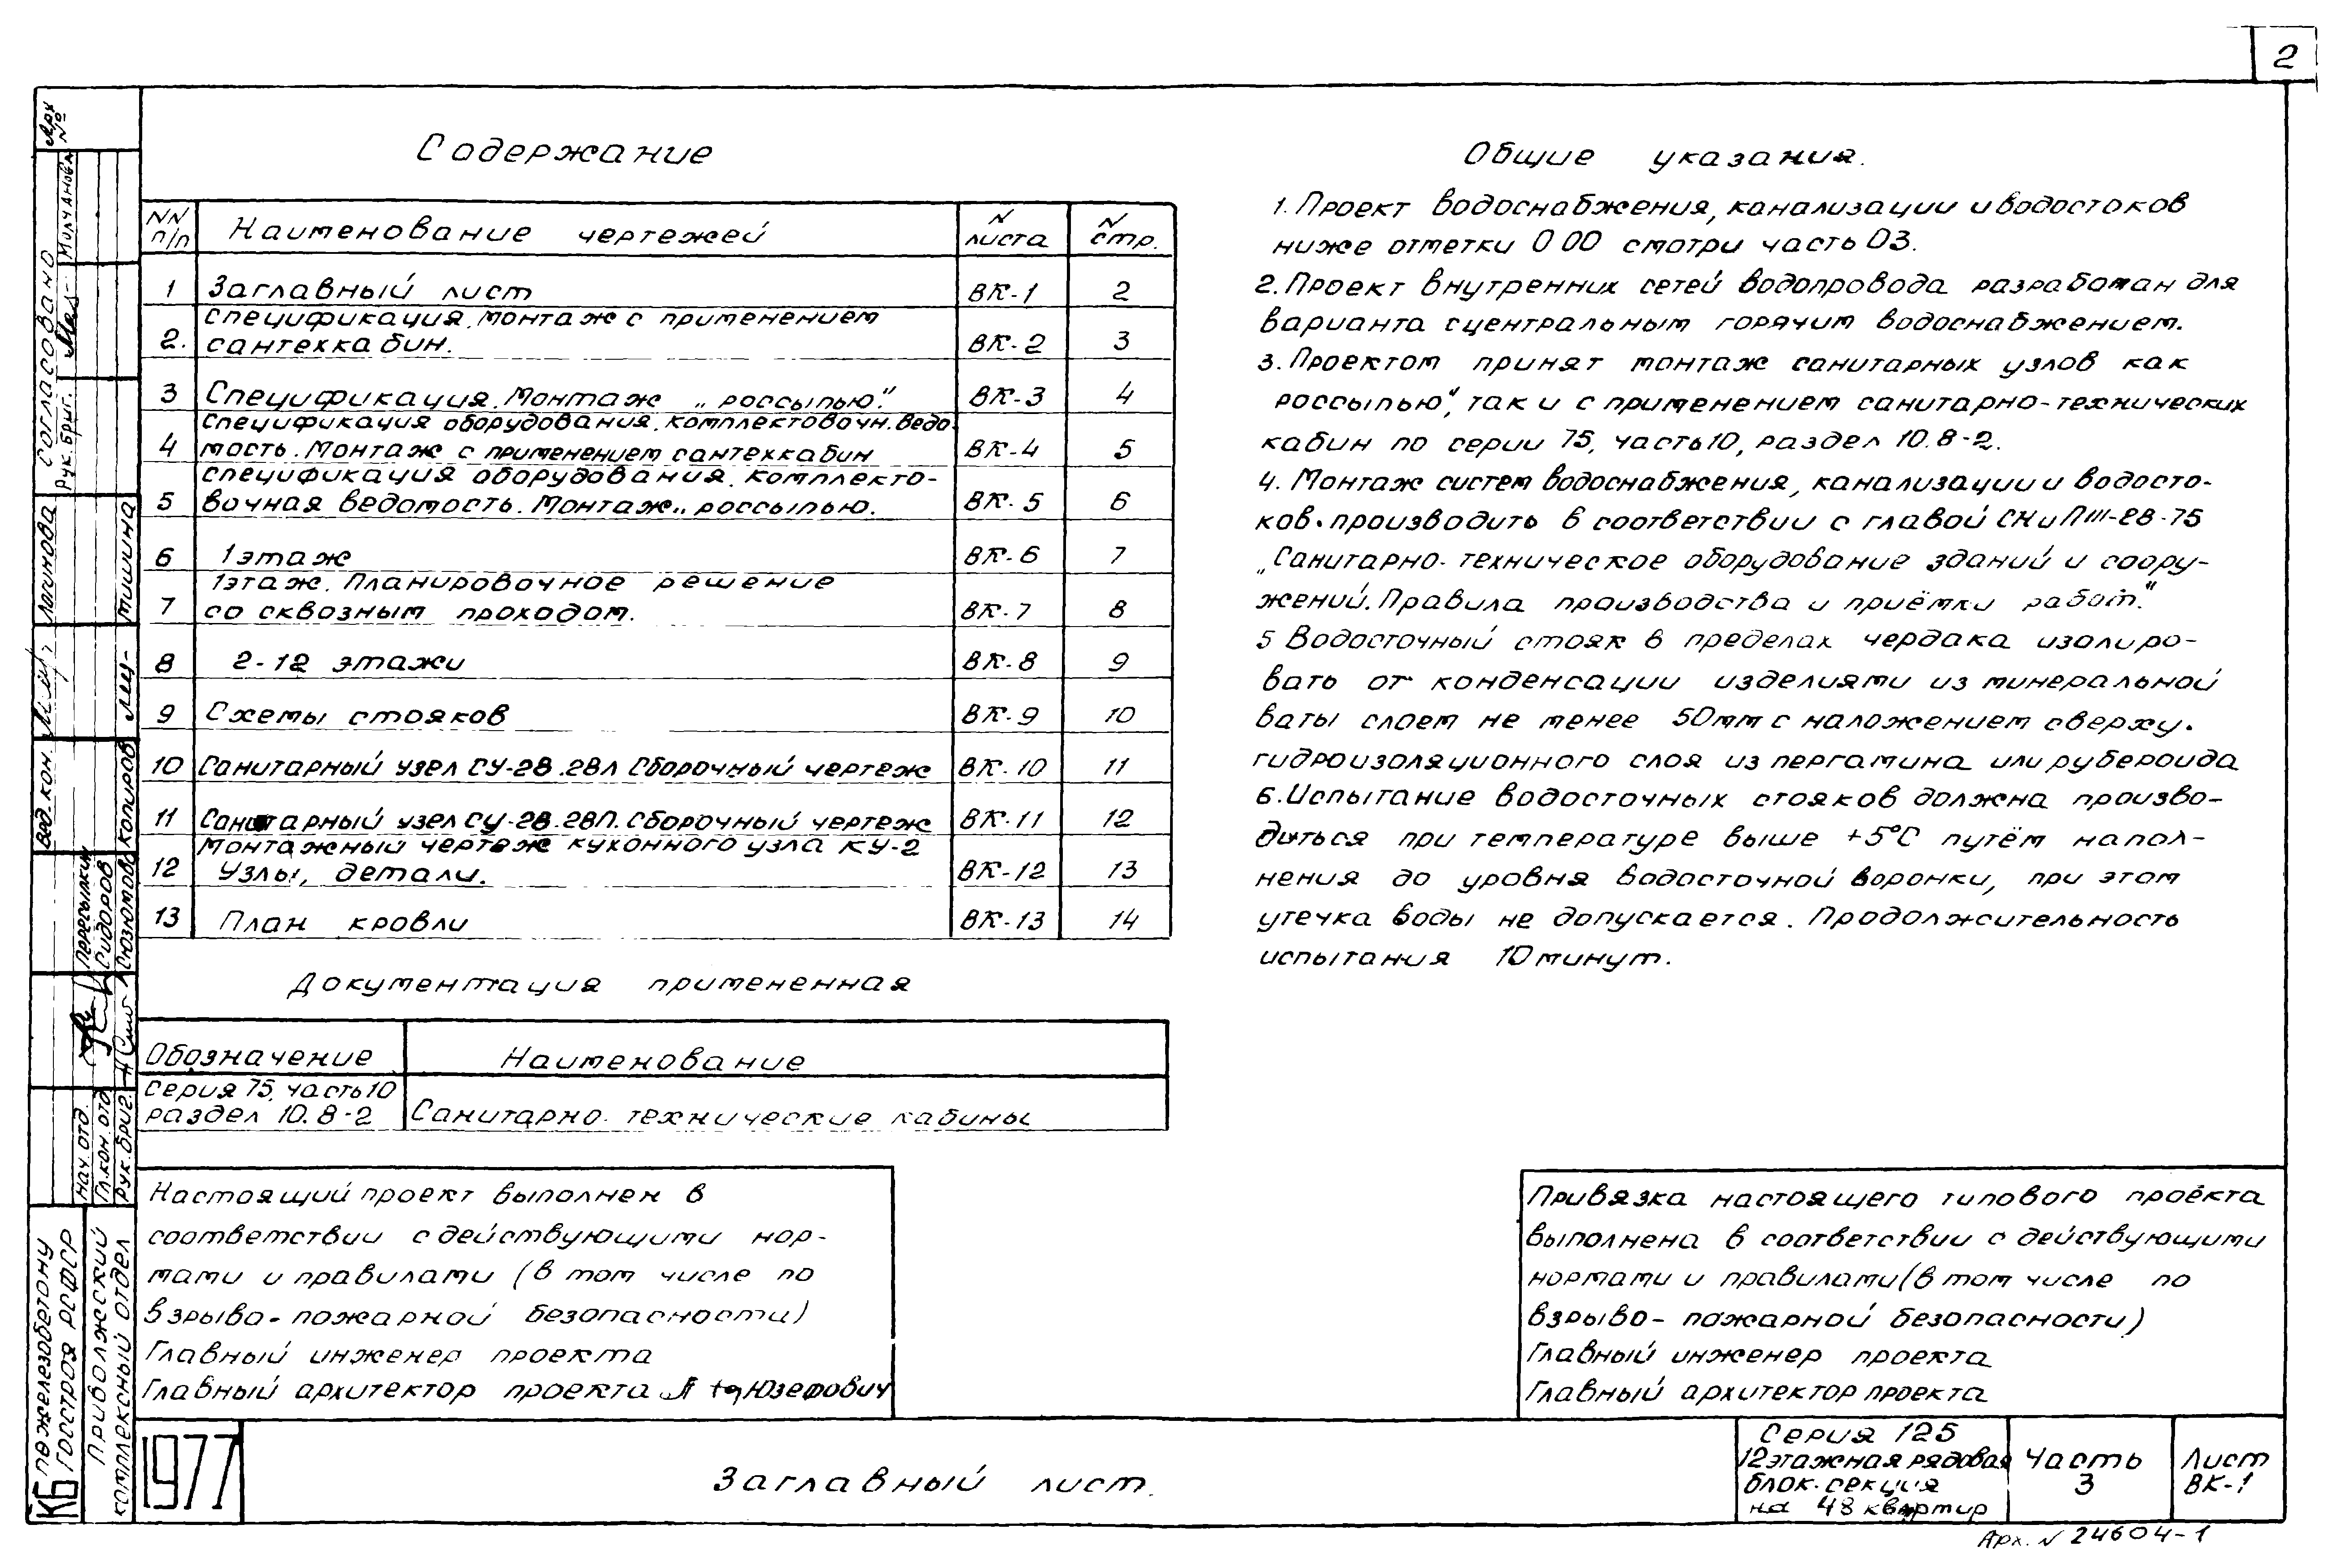 2
Содержание
NN п/п Наименование чертежей N листа N стр.
1 Заглавный лист ВК-1 2
Спецификация. Монтаж с применением
2. сантехкабин. ВК-2 3
3 Спецификация. Монтаж „россыпью." ВК-3 4
Спецификация оборудования. Комплектовочн. ведо-
4 мость. Монтаж с применением сантехкабин ВК-4 5
Спецификация оборудования. Комплекто-
5 вочная ведомость. Монтаж „россыпью. ВК-5 6
6 1 этаж ВК-6 7
1 этаж. Планировочное решение
7 со сквозным проходом. ВК-7 8
8 2-12 этажи ВК-8 9
9 Схемы стояков ВК-9 10
10 Санитарный узел СУ-28.28л Сборочный чертеж ВК-10 11
11 Санитарный узел СУ-28.28П. Сборочный чертеж ВК-11 12
Монтажный чертеж кухонного узла КУ-2
12 Узлы, детали. ВК-12 13
13 План кровли ВК-13 14
Документация примененная
Обозначение Наименование
Серия 75, часть 10
раздел 10.8-2 Санитарно-технические кабины
Настоящий проект выполнен в
соответствии с действующими нор-
мами и правилами (в том числе по
взрыво-пожарной безопасности)
Главный инженер проекта
Главный архитектор проекта Юзефович
Общие указания.
1. Проект водоснабжения, канализации и водостоков
ниже отметки 0 00 смотри часть 03.
2. Проект внутренних сетей водопровода разработан для
варианта с центральным горячим водоснабжением.
3. Проектом принят монтаж санитарных узлов как
россыпью", так и с применением санитарно-технических
кабин по серии 75, часть 10, раздел 10.8-2.
4. Монтаж систем водоснабжения, канализации и водосто-
ков производить в соответствии с главой СНиП III-28-75
„Санитарно-техническое оборудование зданий и соору-
жений. Правила производства и приёмки работ."
5 Водосточный стояк в пределах чердака изолиро-
вать от конденсации изделиями из минеральной
ваты слоем не менее 50мм с наложением сверху
гидроизоляционного слоя из пергамина или рубероида
6. Испытание водосточных стояков должна произво-
диться при температуре выше +5°С путём напол-
нения до уровня водосточной воронки, при этом
утечка воды не допускается. Продолжительность
испытания 10 минут.
Привязка настоящего типового проекта
выполнена в соответствии с действующими
нормами и правилами (в том числе по
взрыво-пожарной безопасности)
Главный инженер проекта
Главный архитектор проекта
1977
Заглавный лист.
Серия 125
12 этажная рядовая
блок-секция
на 48 квартир
Часть
3
Лист
ВК-1
Арх. N 24604-1
Арх №
Согласовано
Рук. бриг. Молчанова
Вед. кон. Логинова
Копиров Мишина
Нач. отд. Перепылкин
Гл. кон. отд. Сидоров
Рук. бриг. Сюзюмова
КБ по железобетону
Госстроя РСФСР
Приволжский
комплексный отдел